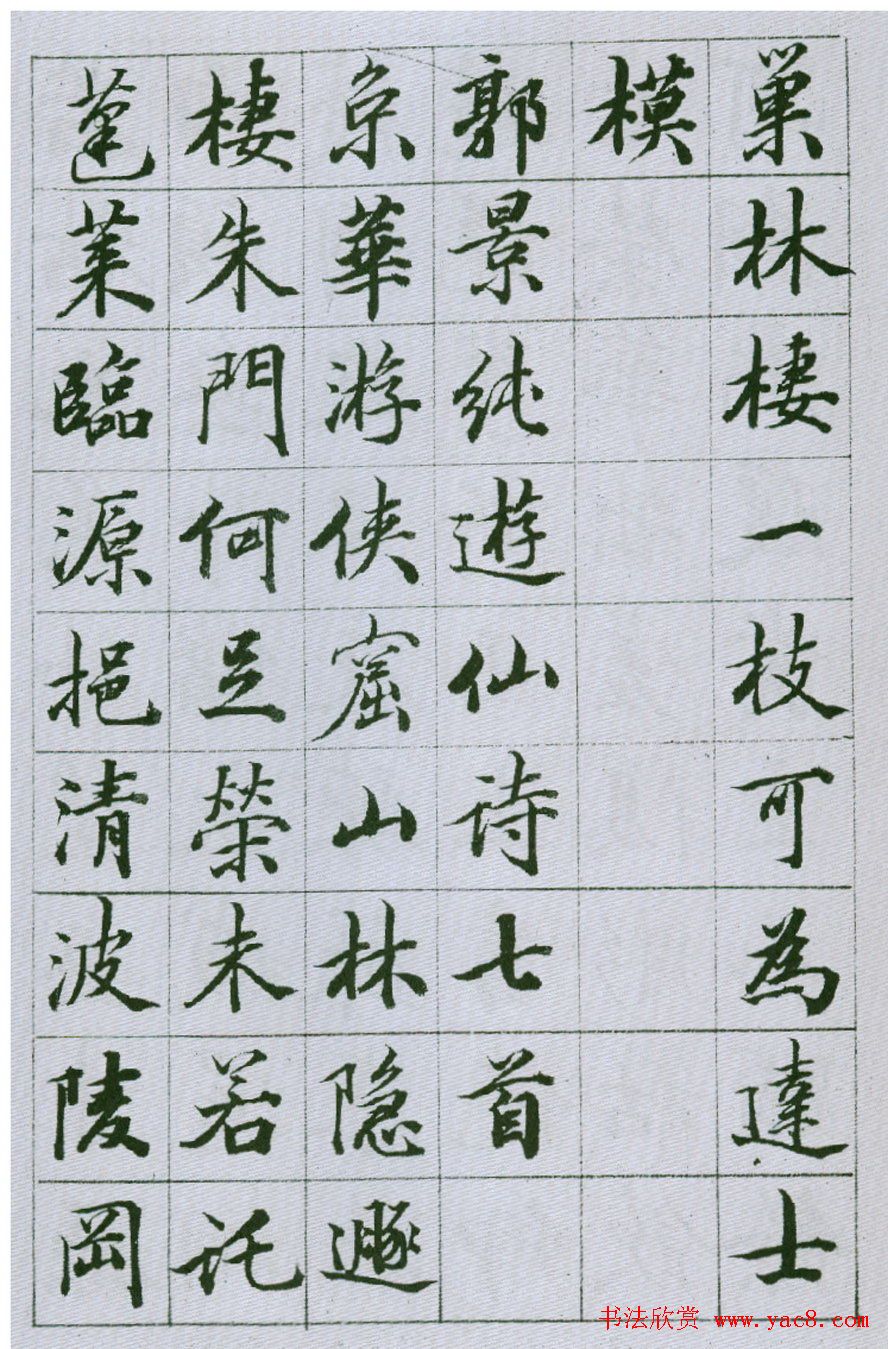 巢林棲一枝可為達士
模
郭景純遊仙詩七首
京華游俠窟山林隱遯
棲朱門何足榮未若託
蓬萊臨源挹清波陵岡
书法欣赏 www.yac8.com